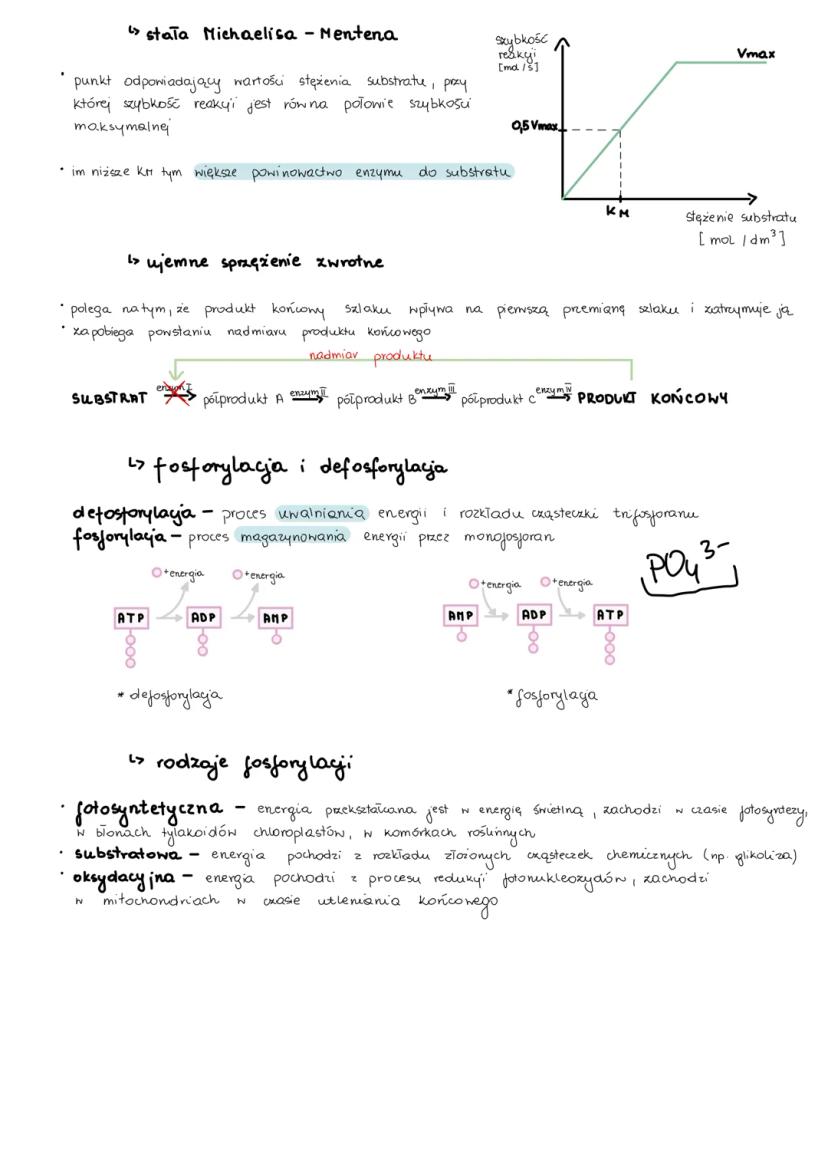 ↳ stała Michaelisa - Mentena
szybkość
reakcji
[mol / s]
Vmax
• punkt odpowiadający wartości stężenia substratu, przy
której szybkość reakcji jest równa połowie szybkości
maksymalnej
0,5 Vmax
• im niższe KM tym większe powinowactwo enzymu do substratu
KM
stężenie substratu
[mol / dm³]
↳ ujemne sprzężenie zwrotne
• polega na tym, że produkt końcowy szlaku wpływa na pierwszą przemianę szlaku i zatrzymuje ją
• zapobiega powstaniu nadmiaru produktu końcowego
nadmiar produktu
SUBSTRAT enzym I półprodukt A enzym II półprodukt B enzym III półprodukt C enzym IV PRODUKT KOŃCOWY
↳ fosforylacja i defosforylacja
defosforylacja - proces uwalniania energii i rozkładu cząsteczki trifosforanu
fosforylacja - proces magazynowania energii przez monofosforan
PO₄³⁻
+energia +energia
+energia +energia
ATP ADP AMP
AMP ADP ATP
* defosforylacja
* fosforylacja
↳ rodzaje fosforylacji
• fotosyntetyczna - energia przekształcana jest w energię świetlną, zachodzi w czasie fotosyntezy,
w błonach tylakoidów chloroplastów, w komórkach roślinnych
• substratowa - energia pochodzi z rozkładu złożonych cząsteczek chemicznych (np. glikoliza)
• oksydacyjna - energia pochodzi z procesu redukcji fotonukleozydów, zachodzi
w mitochondriach w czasie utleniania końcowego